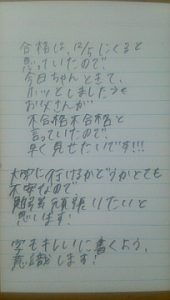 合格は、12/5にくると
思っていたので
今日ちゃんときて、
ホッとしました
お父さんが
不合格不合格と
言っていたので、
早く見せたいです!!!
大学に行けるかどうかとても
不安なので
頑張りたいと
思します!
字もきれいに書くよう、
意識します!